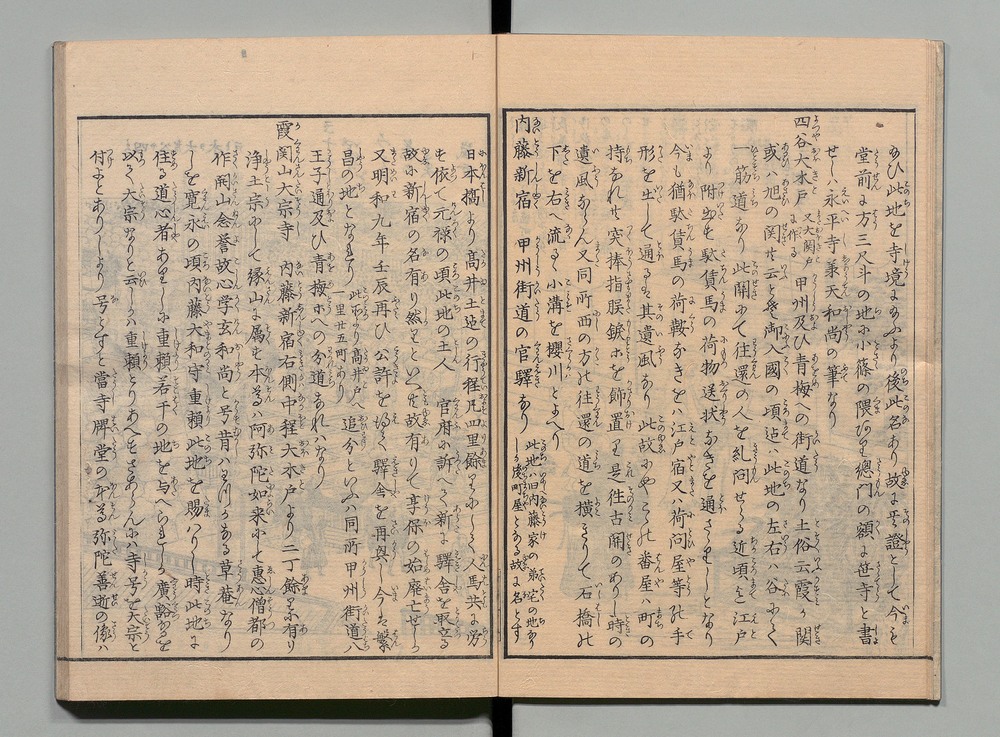 給ひ此地を寺境とすふより後此名あり故に其證として今も
堂前に方三尺斗の地に小篠の隈ひあり總門の額に笹寺と書
せしハ永平寺義天和尚の筆なり
四谷大木戸 又大関戸に作る 甲州及ひ青梅への街道なり土俗云霞か関
或ハ旭の関共云と先御入國の頃迠ハ此地の左右ハ谷にて
一筋道なり此関にて往還の人を糺問せらる近頃迄江戸
より附出す駄賃馬の荷物送状なきを通さゝりしとなり
今も猶駄賃馬の荷鞍なきをハ江戸宿又ハ荷問屋等の手
形を出して通るは其遺風なり此故にやこゝの番屋ハ町の
持なれ共突棒指股錑等を飾置り是往古関のありし時の
遺風ならん又同所西の方の往還の道を横きりて石橋の
下を右へ流るゝ小溝を櫻川とよへり
内藤新宿 甲州街道の官驛なり 此地ハ旧内藤家の第宅の地なりしか後町屋となる故に名とす
日本橋より高井土迠の行程凡四里餘にして人馬共に労
す依て元禄の頃此地の土人 官府に訴へて新に驛舎を取立る
故に新宿の名有り然るといへとも故有りて享保の始廃亡せしか
又明和九年壬辰再ひ公許を得て驛舎を再興し今は繁
昌の地となれり 此所より高井戸へ一里廿五町あり 追分といふハ同所甲州街道八
王子通及ひ青梅等への分道なれハなり
霞関山大宗寺 内藤新宿右側中程大木戸より二丁餘に有り
浄土宗にして縁山に属す本尊ハ阿弥陀如来にて惠心僧都の
作開山念誉故心学玄和尚と号昔ハいつかある草菴なり
しを寛永の頃内藤大和守重頼此地を賜ハりし時此地に
住る道心者ありしに重頼若干の地を与へられしか廣齢なるを
以て大宗なりと云しハ重頼とりあへすさあらんにハ寺号を大宗と
付よとありしより号とすと當寺脾堂の本尊弥陀善逝の像ハ